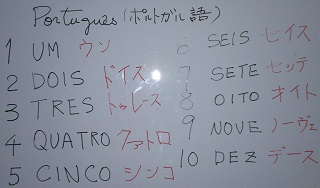 Portuguës (ポルトガル語)
1 UM ウン
2 DOIS ドイス
3 TRES トゥレース
4 QUATRO クァトロ
5 CINCO シンコ
6 SEIS セイス
7 SETE セッテ
8 OITO オイト
9 NOVE ノーヴェ
10 DEZ デース